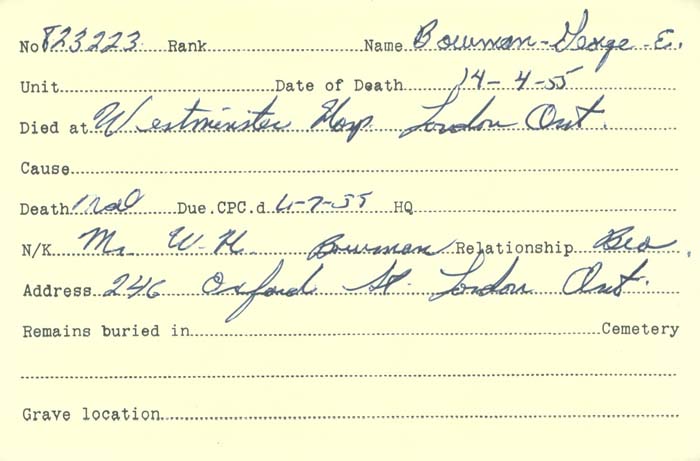 No 823223 Rank Name Bowman - George E.
Unit Date of Death 14-4-55
Died at Westminister Hosp. London Ont.
Cause
Death Due.CPC.d 6-7-55 HQ
N/K Mr. W.H. Bowman Relationship Bro.
Address 246 Oxford St. London Ont.
Remains buried in Cemetery
Grave location